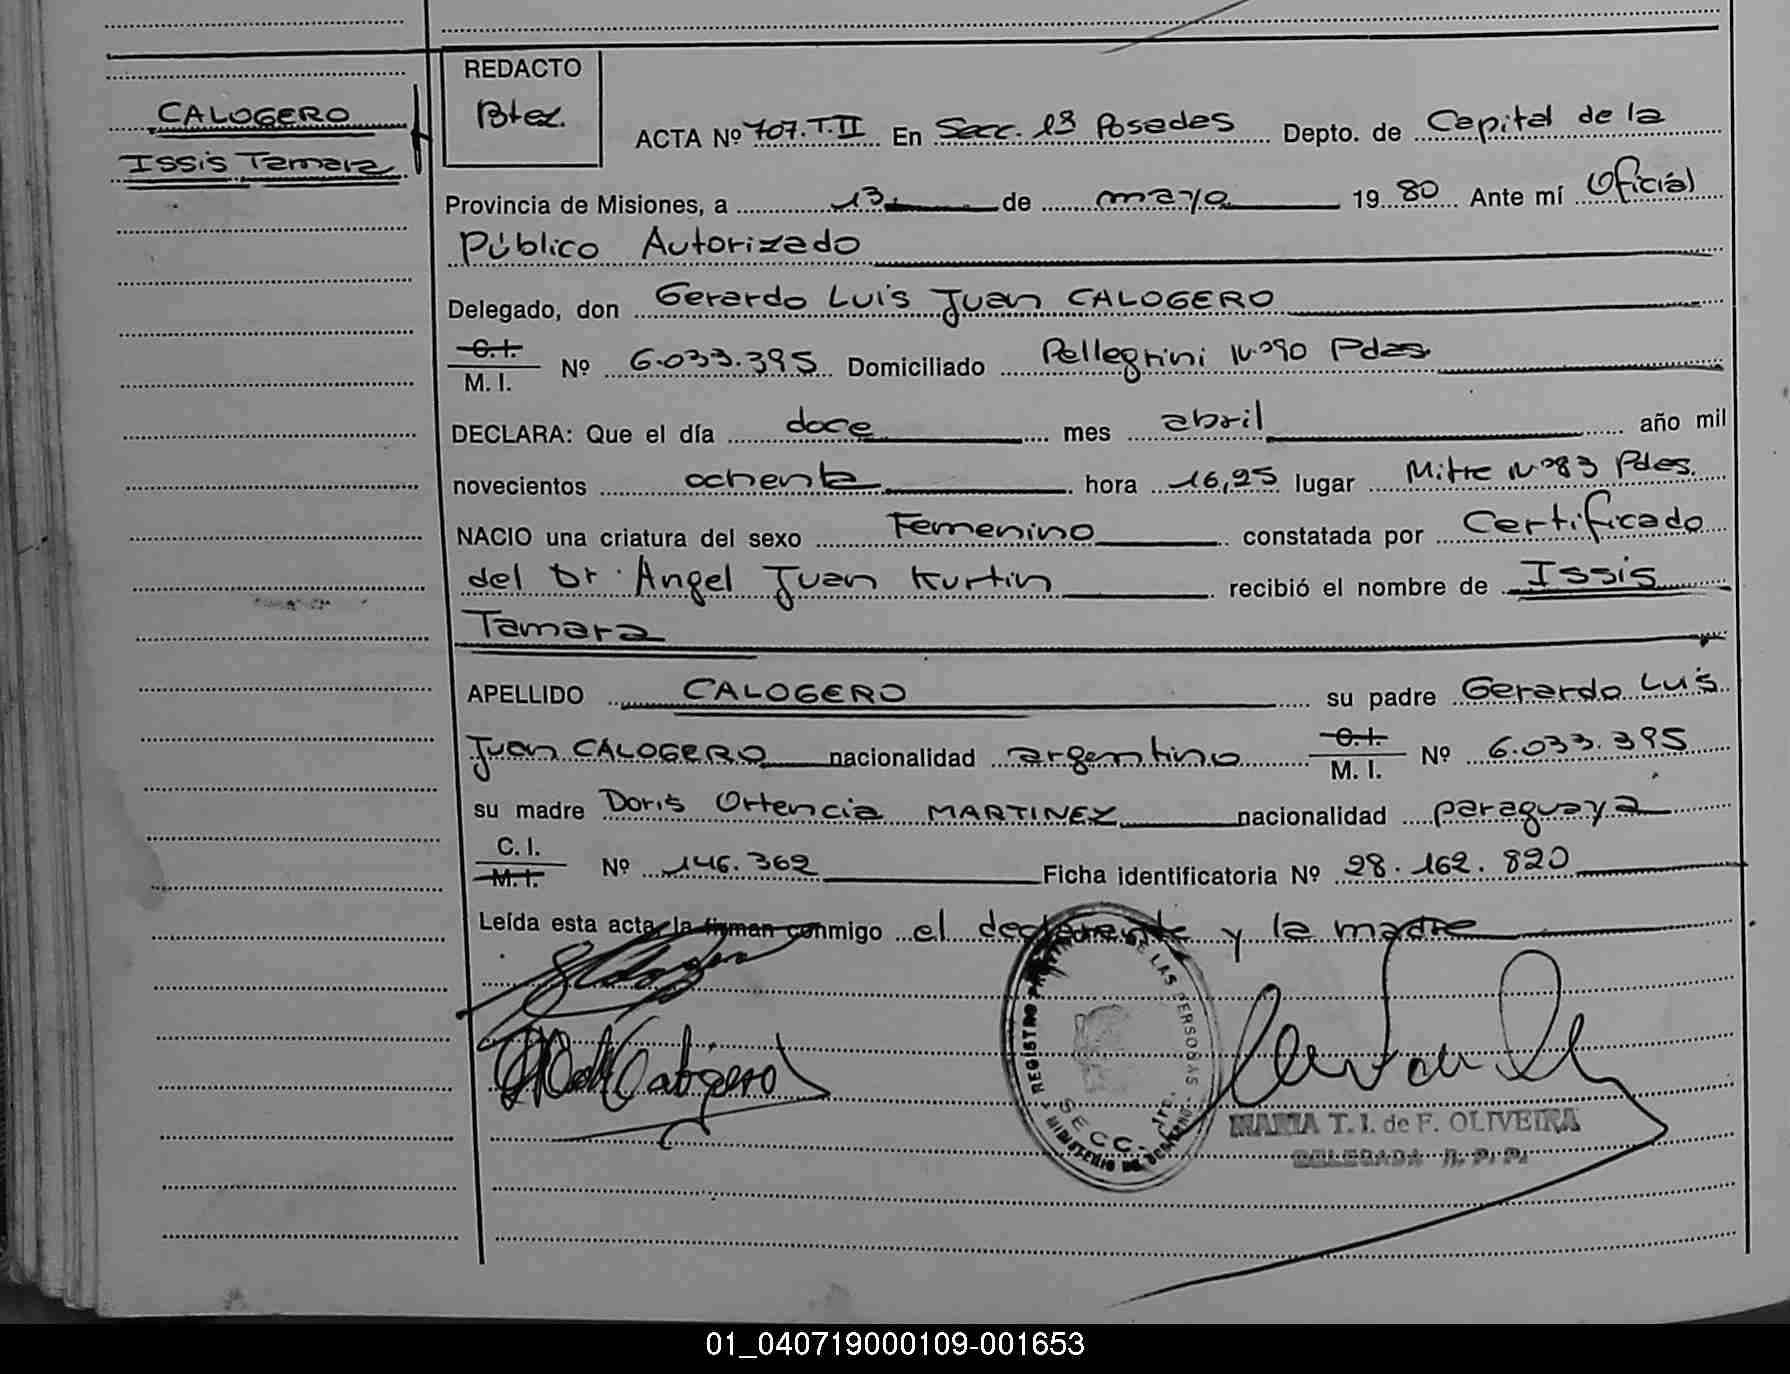 CALOGERO
Issis Tamara
REDACTO
Btez.
ACTA Nº 707.T.II En Secc. 1ª Posadas Depto. de Capital de la
Provincia de Misiones, a 13 de mayo 1980 Ante mí Oficial
Público Autorizado
Delegado, don Gerardo Luis Juan CALOGERO
C.I.
M. I. Nº 6.033.395 Domiciliado Pellegrini Nº 290 Pdas.
DECLARA: Que el día doce mes abril año mil
novecientos ochenta hora 16,25 lugar Mitre Nº 83 Pdas.
NACIO una criatura del sexo Femenino constatada por Certificado
del Dr. Angel Juan Kurtin recibió el nombre de Issis
Tamara
APELLIDO CALOGERO su padre Gerardo Luis
Juan CALOGERO nacionalidad argentino C.I. M. I. Nº 6.033.395
su madre Doris Ortencia MARTINEZ nacionalidad paraguaya
C. I.
M. I. Nº 146.362 Ficha identificatoria Nº 28.162.820
Leída esta acta, la firman conmigo el declarante y la madre
REGISTRO DE LAS PERSONAS
SECC.
MINISTERIO DE GOBIERNO
MARIA T. I. de F. OLIVEIRA
DELEGADA R. P. P.
01_040719000109-001653